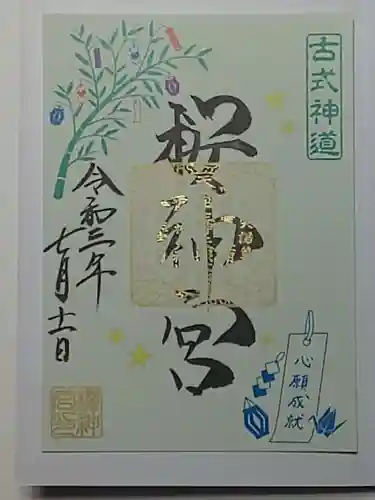 古式神道
櫻神宮
令和三年
七月十一日
心願成就